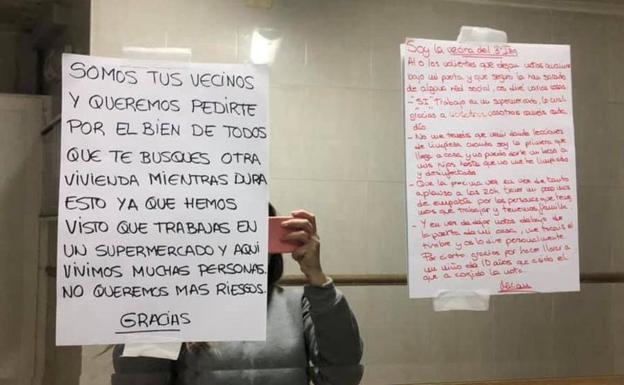 SOMOS TUS VECINOS
Y QUEREMOS PEDIRTE
POR EL BIEN DE TODOS
QUE TE BUSQUES OTRA
VIVIENDA MIENTRAS DURA
ESTO YA QUE HEMOS
VISTO QUE TRABAJAS EN
UN SUPERMERCADO Y AQUÍ
VIVIMOS MUCHAS PERSONAS.
NO QUEREMOS MAS RIESGOS.
GRACIAS
Soy la vecina del 3º
Al o los valientes que dejan notas
bajo mi puerta, y que seguro la han sacado
de alguna red social, os dire varias cosas
- "SI" Trabajo en un supermercado, la cual
gracias a vosotros
día.
- No me teneis que venir dando lecciones
de limpieza cuando soy la primera que
llega a casa, y no puedo darle un beso a
mis hijos hasta que no me he limpiado
y desinfectado
- Que la proxima vez en vez de tanto
aplauso a las 20h tener un poco mas
de empatía por las personas que tene
mos que trabajar y tenemos familia.
- Y en vez de dejar notas debajo de
la puerta de mi casa, me tocais el
timbre y os lo dire personalmente
Por cierto gracias por hacer llorar a
un niño de 10 años que ha sido el
que a cogido la nota.